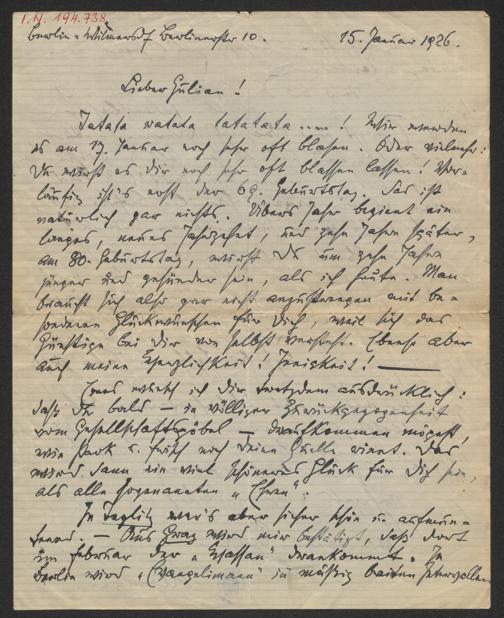 I.N. 194.738
Berlin-Wilmersdf Berlinerstr 10. 15. Januar 1926.
Lieber Julian!
Tatata ratata tatatata....! Wir werden
es am 17. Januar noch sehr oft blasen. Oder vielmehr:
Du wirst es dir noch sehr oft blasen lassen! Vor-
läufig ist's erst der 69. Geburtstag. Das ist
natürlich gar nichts. Übers Jahr beginnt ein
langes, neues Jahrzehnt, und zehn Jahre später,
am 80. Geburtstag, wirst Du um zehn Jahre
jünger und gesünder sein, als ich heute. Man
braucht sich also gar nicht anzustrengen mit be-
sonderen Glückwünschen für Dich, weil sich das
Günstige bei Dir von selbst versteht. Ebenso aber
auch meine Herzlichkeit! Innigkeit! —
Eines wünsch ich Dir trotzdem ausdrücklich:
daß Du bald — in völliger Zurückgezogenheit
vom Gesellschaftspöbel — draufkommen mögest,
wie stark u. frisch noch deine Quelle rinnt. Das
wird dann ein viel schöneres Glück für Dich sein,
als alle sogenannten „Ehren“.
In war's aber sicher schön u. aufmun-
ternd. — Aus Graz wird mir bestätigt, daß dort
im Februar der „Gassan“ drankommt. In
Berlin wird „Evangelimann“ in mäßig breiten Intervallen